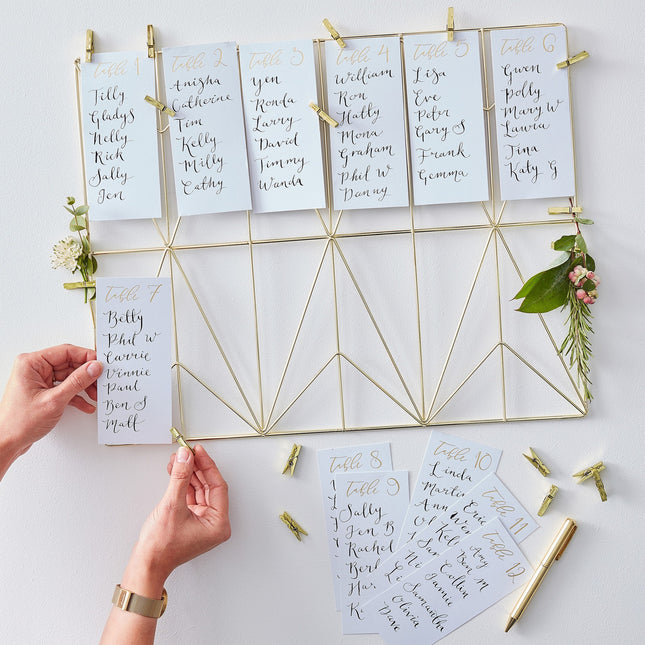 Table 1
Tilly
Gladys
Nelly
Rick
Sally
Jen
Table 2
Anisha
Catherine
Tim
Kelly
Milly
Cathy
Table 3
Yen
Ronda
Larry
David
Timmy
Wanda
Table 4
William
Ron
Hatty
Mona
Graham
Phil W
Danny
Table 5
Lisa
Eve
Peter
Gary S
Frank
Gemma
Table 6
Gwen
Polly
Mary W
Laura
Tina
Katy G
Table 7
Betty
Phil W
Carrie
Vinnie
Paul
Ben S
Matt
Table 8
Table 9
Sally
Jen B
Rachel
Table 10
Linda
Martin
Ann
Table 11
Eric
Wen
Kel
Sam
Table 12
Amy
Ben M
Collin
Jamie
Samantha
Olivia
Dave